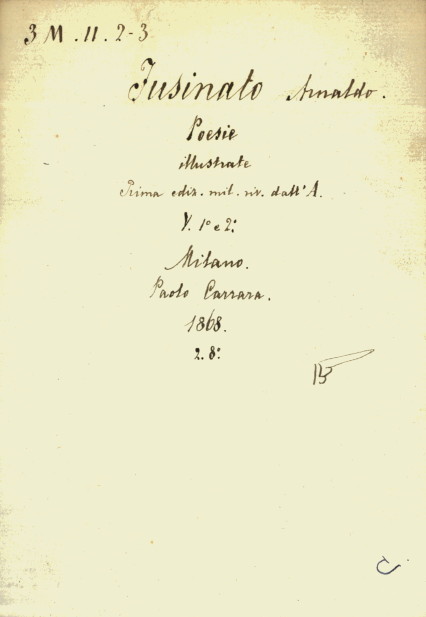 3 M. 11. 2-3
Fusinato Arnaldo.
Poesie
illustrate
Prima ediz. mil. riv. dall' A.
V. 1º e 2º:
Milano.
Paolo Carrara.
1868.
2. 8º: